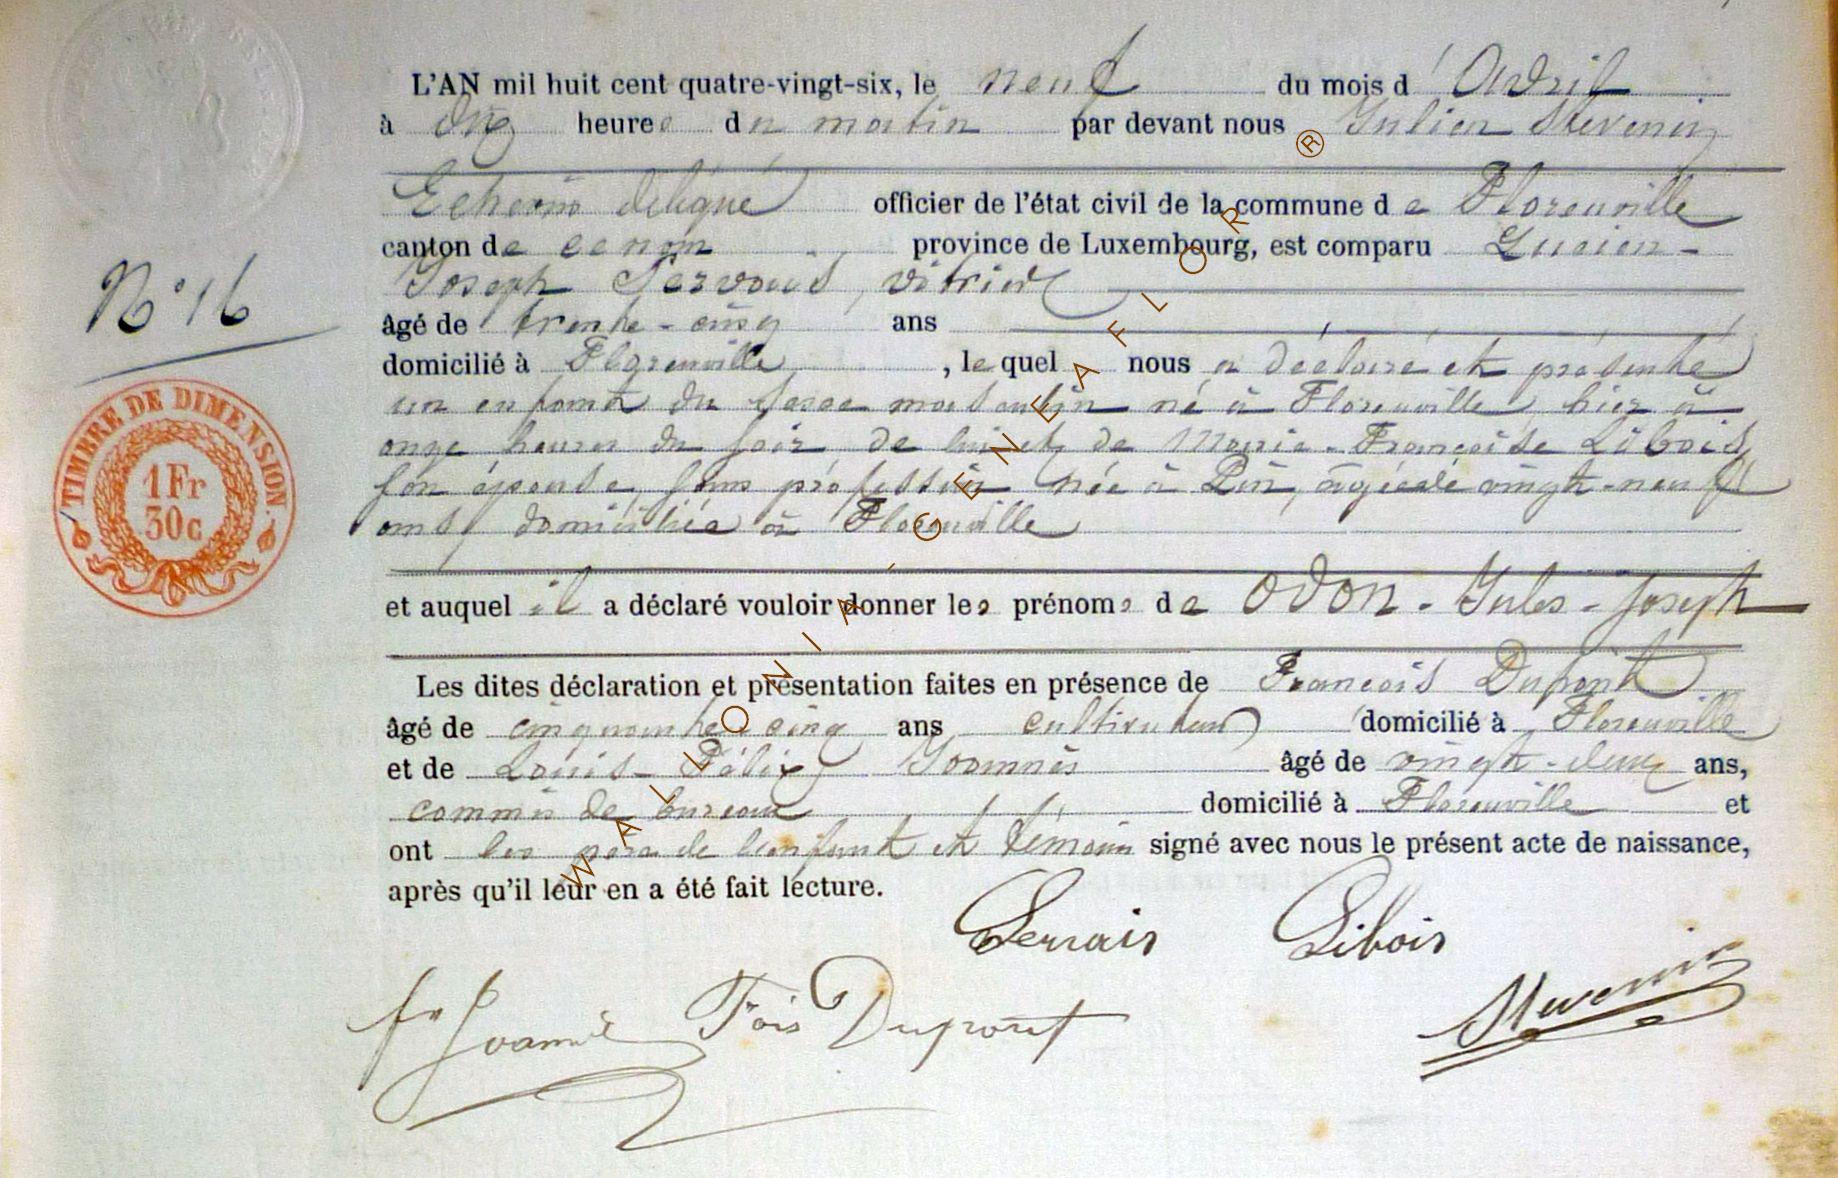 L'AN mil huit cent quatre-vingt-six, le neuf du mois d'Avril
à dix heures du matin par devant nous Julien Stevenin
Echevin délégué officier de l'état civil de la commune de Florenville
canton de ce nom province de Luxembourg, est comparu Lucien-
Joseph Servais, vitrier
âgé de trente-cinq ans
domicilié à Florenville, lequel nous a déclaré et présenté
un enfant du sexe masculin né à Florenville hier à
onze heures du soir de lui et de Marie-Françoise Libois
son épouse, sans profession née à Pin, âgée de vingt-neuf
ans, domiciliée à Florenville
et auquel il a déclaré vouloir donner les prénoms de Odon-Jules-Joseph
Les dites déclaration et présentation faites en présence de François Dupont
âgé de cinquante cinq ans cultivateur domicilié à Florenville
et de Louis-Félix Joannès âgé de vingt-deux ans,
commis de bureau domicilié à Florenville et
ont les père de l'enfant et témoins signé avec nous le présent acte de naissance,
après qu'il leur en a été fait lecture.
Servais Libois
Fçois Dupont
Stevenin
N° 16
TIMBRE DE DIMENSION.
1 Fr
30c
WALLONIA-GENEAFLOR ®